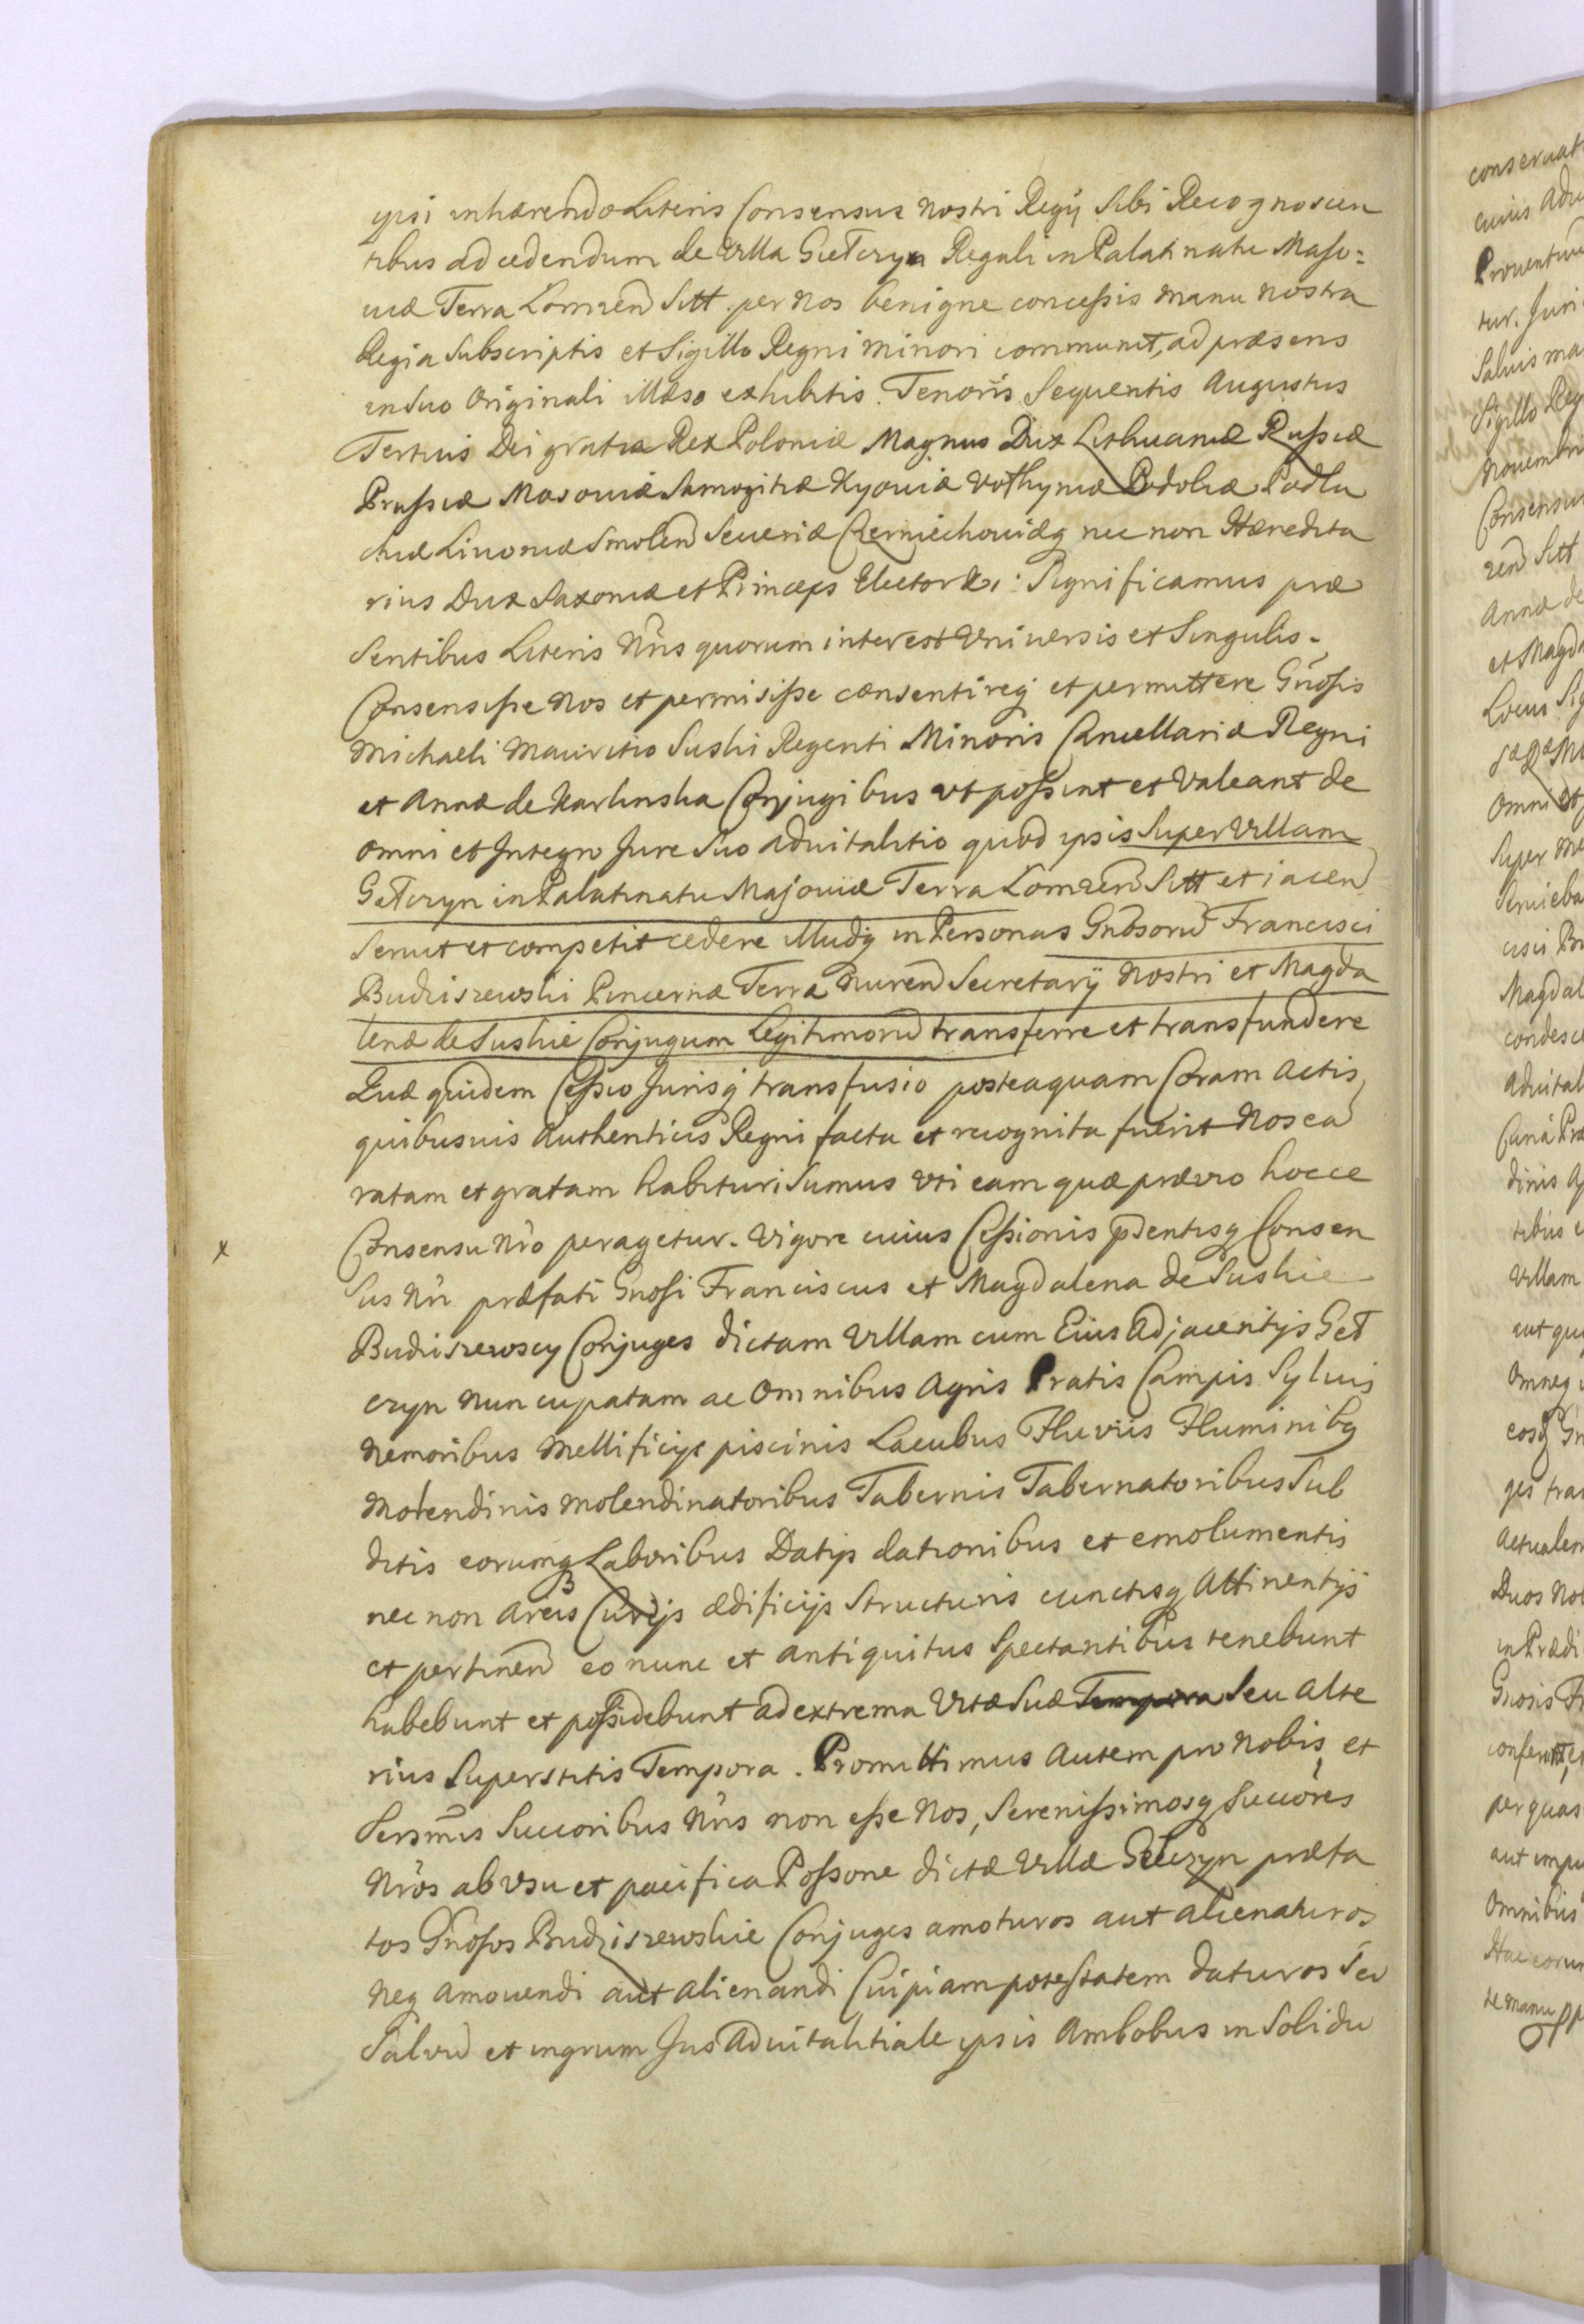 ipsi inhærendo Literis Consensus Nostri Regij Sibi Recognoscen
tibus ad cedendum de Villa Giełczyn Regali in Palatinatu Maso=
viæ Terra Lomzen Sitt. per Nos benigne concessis manu nostra
Regia Subscriptis et Sigillo Regni minori communit, ad præsens
in Suo Originali illæso exhibitis. Tenoris Sequentis Augustus
Tertius Dei gratia Rex Poloniæ Magnus Dux Lithuaniæ Russiæ
Prussiæ Masoviæ Samogitiæ Kyoviæ Volhyniæ Podoliæ Podla
chiæ Livoniæ Smolen Severiæ Czerniechoviæq nec non Hæredita
rius Dux Saxoniæ et Princeps Elector &. Significamus præ
Sentibus Literis Nris quorum interest Universis et Singulis.
Consensisse Nos et permisisse consentireq et permittere Gnosis
Michaeli Mauritio Suski Regenti Minoris Cancellariæ Regni
et Annæ de Karlinska Conjugibus ut possint et Valeant de
Omni et Integro Jure Suo advitalitio quod ipsis Super Villam
Gełczyn in Palatinatu Masoviæ Terra Lomzen Sitt et jacen
Servit et competit cedere Illudq in Personas Gnosoru Francisci
Budziszewski Pincernæ Terræ Nuren Secretarij Nostri et Magda
lenæ de Suskie Conjugum Legitimoru transferre et transfundere
Quæ quidem Cessio Jurisq transfusio posteaquam Coram Actis
quibusvis Authenticis Regni facta et recognita fuerit Nos ea
ratam et gratam habituri Sumus Uti eam quæ prævio hocce
x Consensu Nro peragetur. Vigore cuius Cessionis pdentisq Consen
sus Nri præfati Gnosi Franciscus et Magdalena de Suskie
Budziszewscy Conjuges dictam Villam cum Eius Adjacentijs Geł
czyn Nuncupatam ac Omnibus Agris Pratis Campis Sylvis
Nemoribus Mellificijs piscinis Lacubus Fluviis Fluminibq
Molendinis Molendinatoribus Tabernis Tabernatoribus Sub
ditis eorumq Laboribus Datijs dationibus et emolumentis
nec non Areis Curijs ædificijs Structuris cunctisq Attinentijs
et pertinen eo nunc et antiquitus Spectantibus tenebunt
habebunt et possidebunt ad extrema Vitæ Suæ Tempora Seu alte
rius Superstitis Tempora. Promittimus Autem pro Nobis et
Sersmis Succoribus Nris non esse Nos, Serenissimosq Succores
Nros ab Usu et pacifica Possone dictæ Villæ Gełczyn præfa
tos Gnosos Budziszewskie Conjuges amoturos aut alienaturos
Neq Amovendi aut Alienandi Cuipiam potestatem daturos Seu
Salvu et ingrum Jus Advitalitiale ipsis Ambobus in Solidu